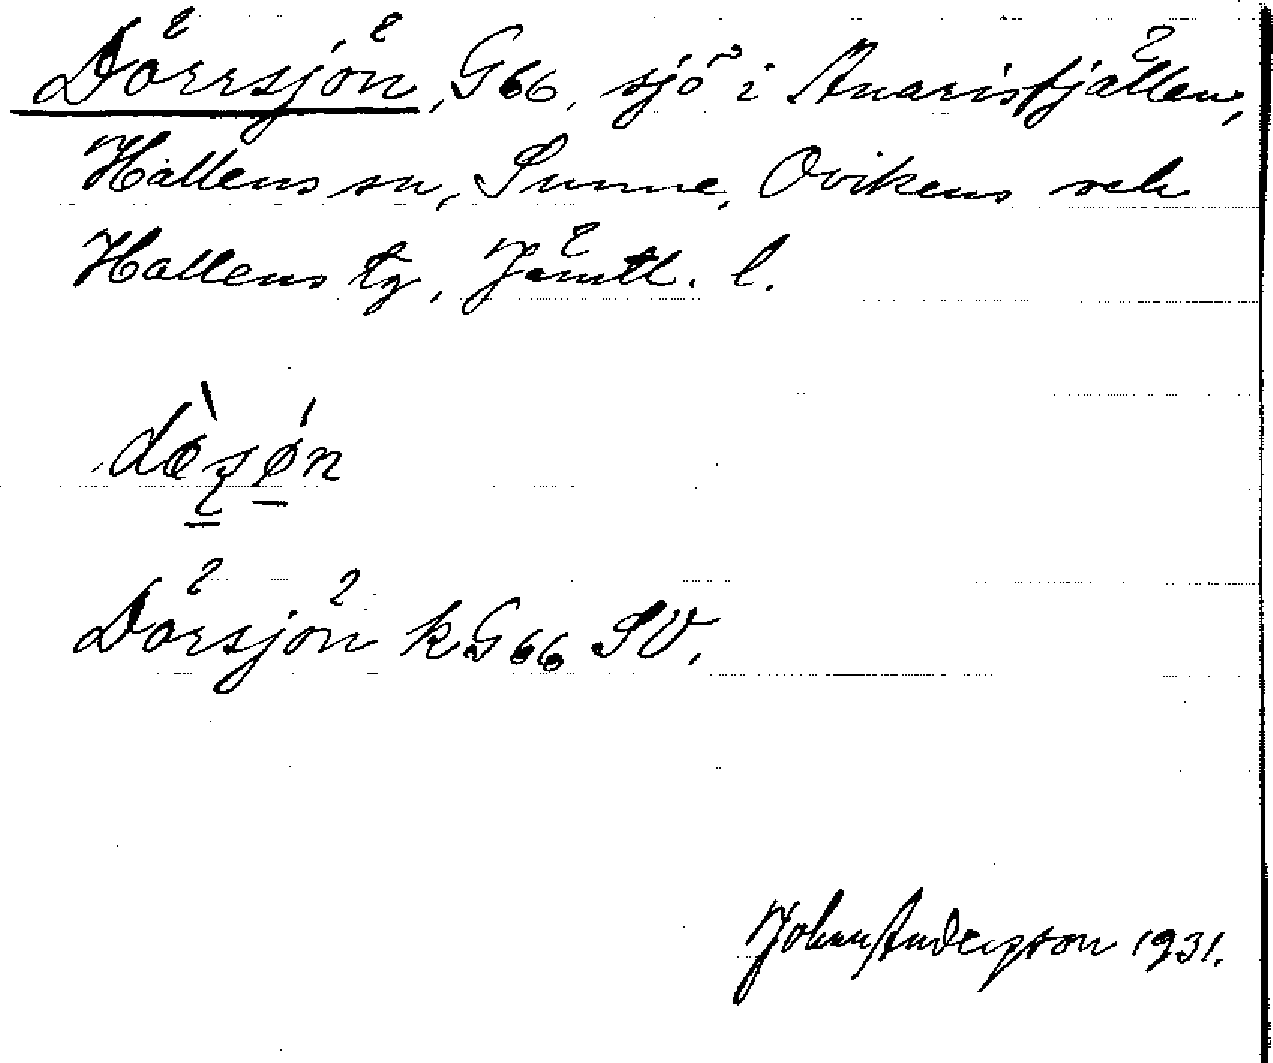 Dörrsjön, G66, sjö i Anarisfjällen,
Hallens sn, Sunne, Ovikens och
Hallens tg, Jämtl. l.
Dörsjön k G66 SV.
Johan Anderson 1931.